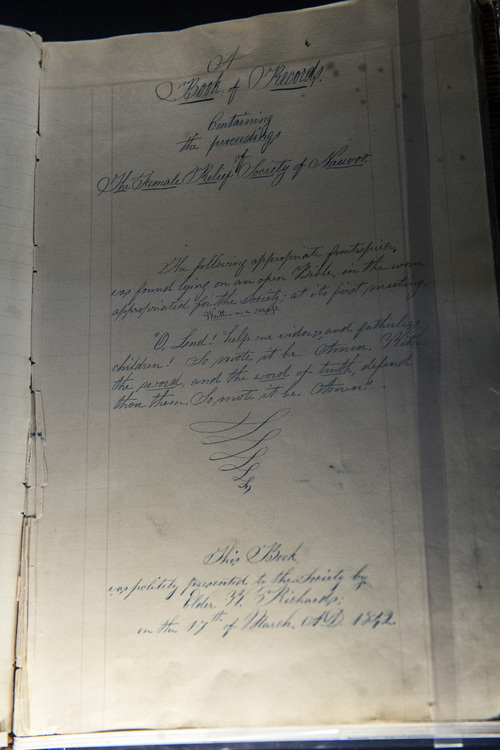 A
Book of Records
Containing
the proceedings
of
The Female Relief Society of Nauvoo.
The following appropriate frontispiece
was found lying on an open Bible, in the room
appropriated for the Society; at its first meeting.
Written on a scrap
"O, Lord! help our widows, and fatherless
children! So mote it be. Amen. With
the sword, and the word of truth, defend
thou them. So mote it be. Amen."
This Book
was politely presented to the Society by
Elder W. Richards;
on the 17th of March, AD. 1842.